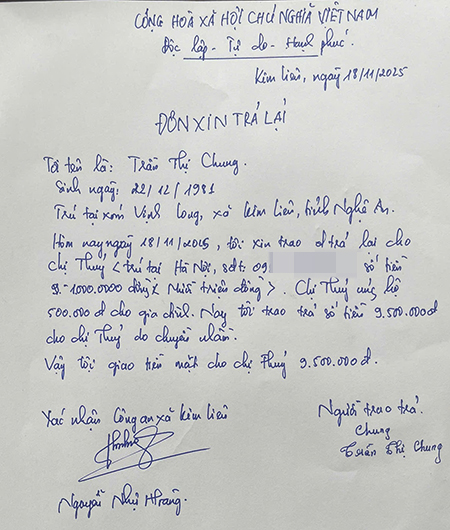 CỘNG HOÀ XÃ HỘI CHỦ NGHĨA VIỆT NAM
Độc lập - Tự do - Hạnh phúc.
Kim Liên, ngày 18/11/2025
ĐƠN XIN TRẢ LẠI
Tôi tên là: Trần Thị Chung.
Sinh ngày: 22/12/1981
Trú tại xóm Vịnh Long, xã Kim Liên, tỉnh Nghệ An.
Hôm nay ngày 18/11/2025, tôi xin trao trả lại cho
chị Thuý < trú tại Hà Nội, sđt: 09 số tiền
đồng triệu đồng >. Chị Thuý ủng hộ
500.000 đ cho gia đình. Nay tôi trao trả số tiền 9.500.000đ
cho chị Thuý do chuyển nhầm.
Vậy tôi giao tiền mặt cho chị Thuý 9.500.000đ.
Xác nhận Công an xã Kim Liên
Người trao trả.
Chung
Trần Thị Chung
Nguyễn Như